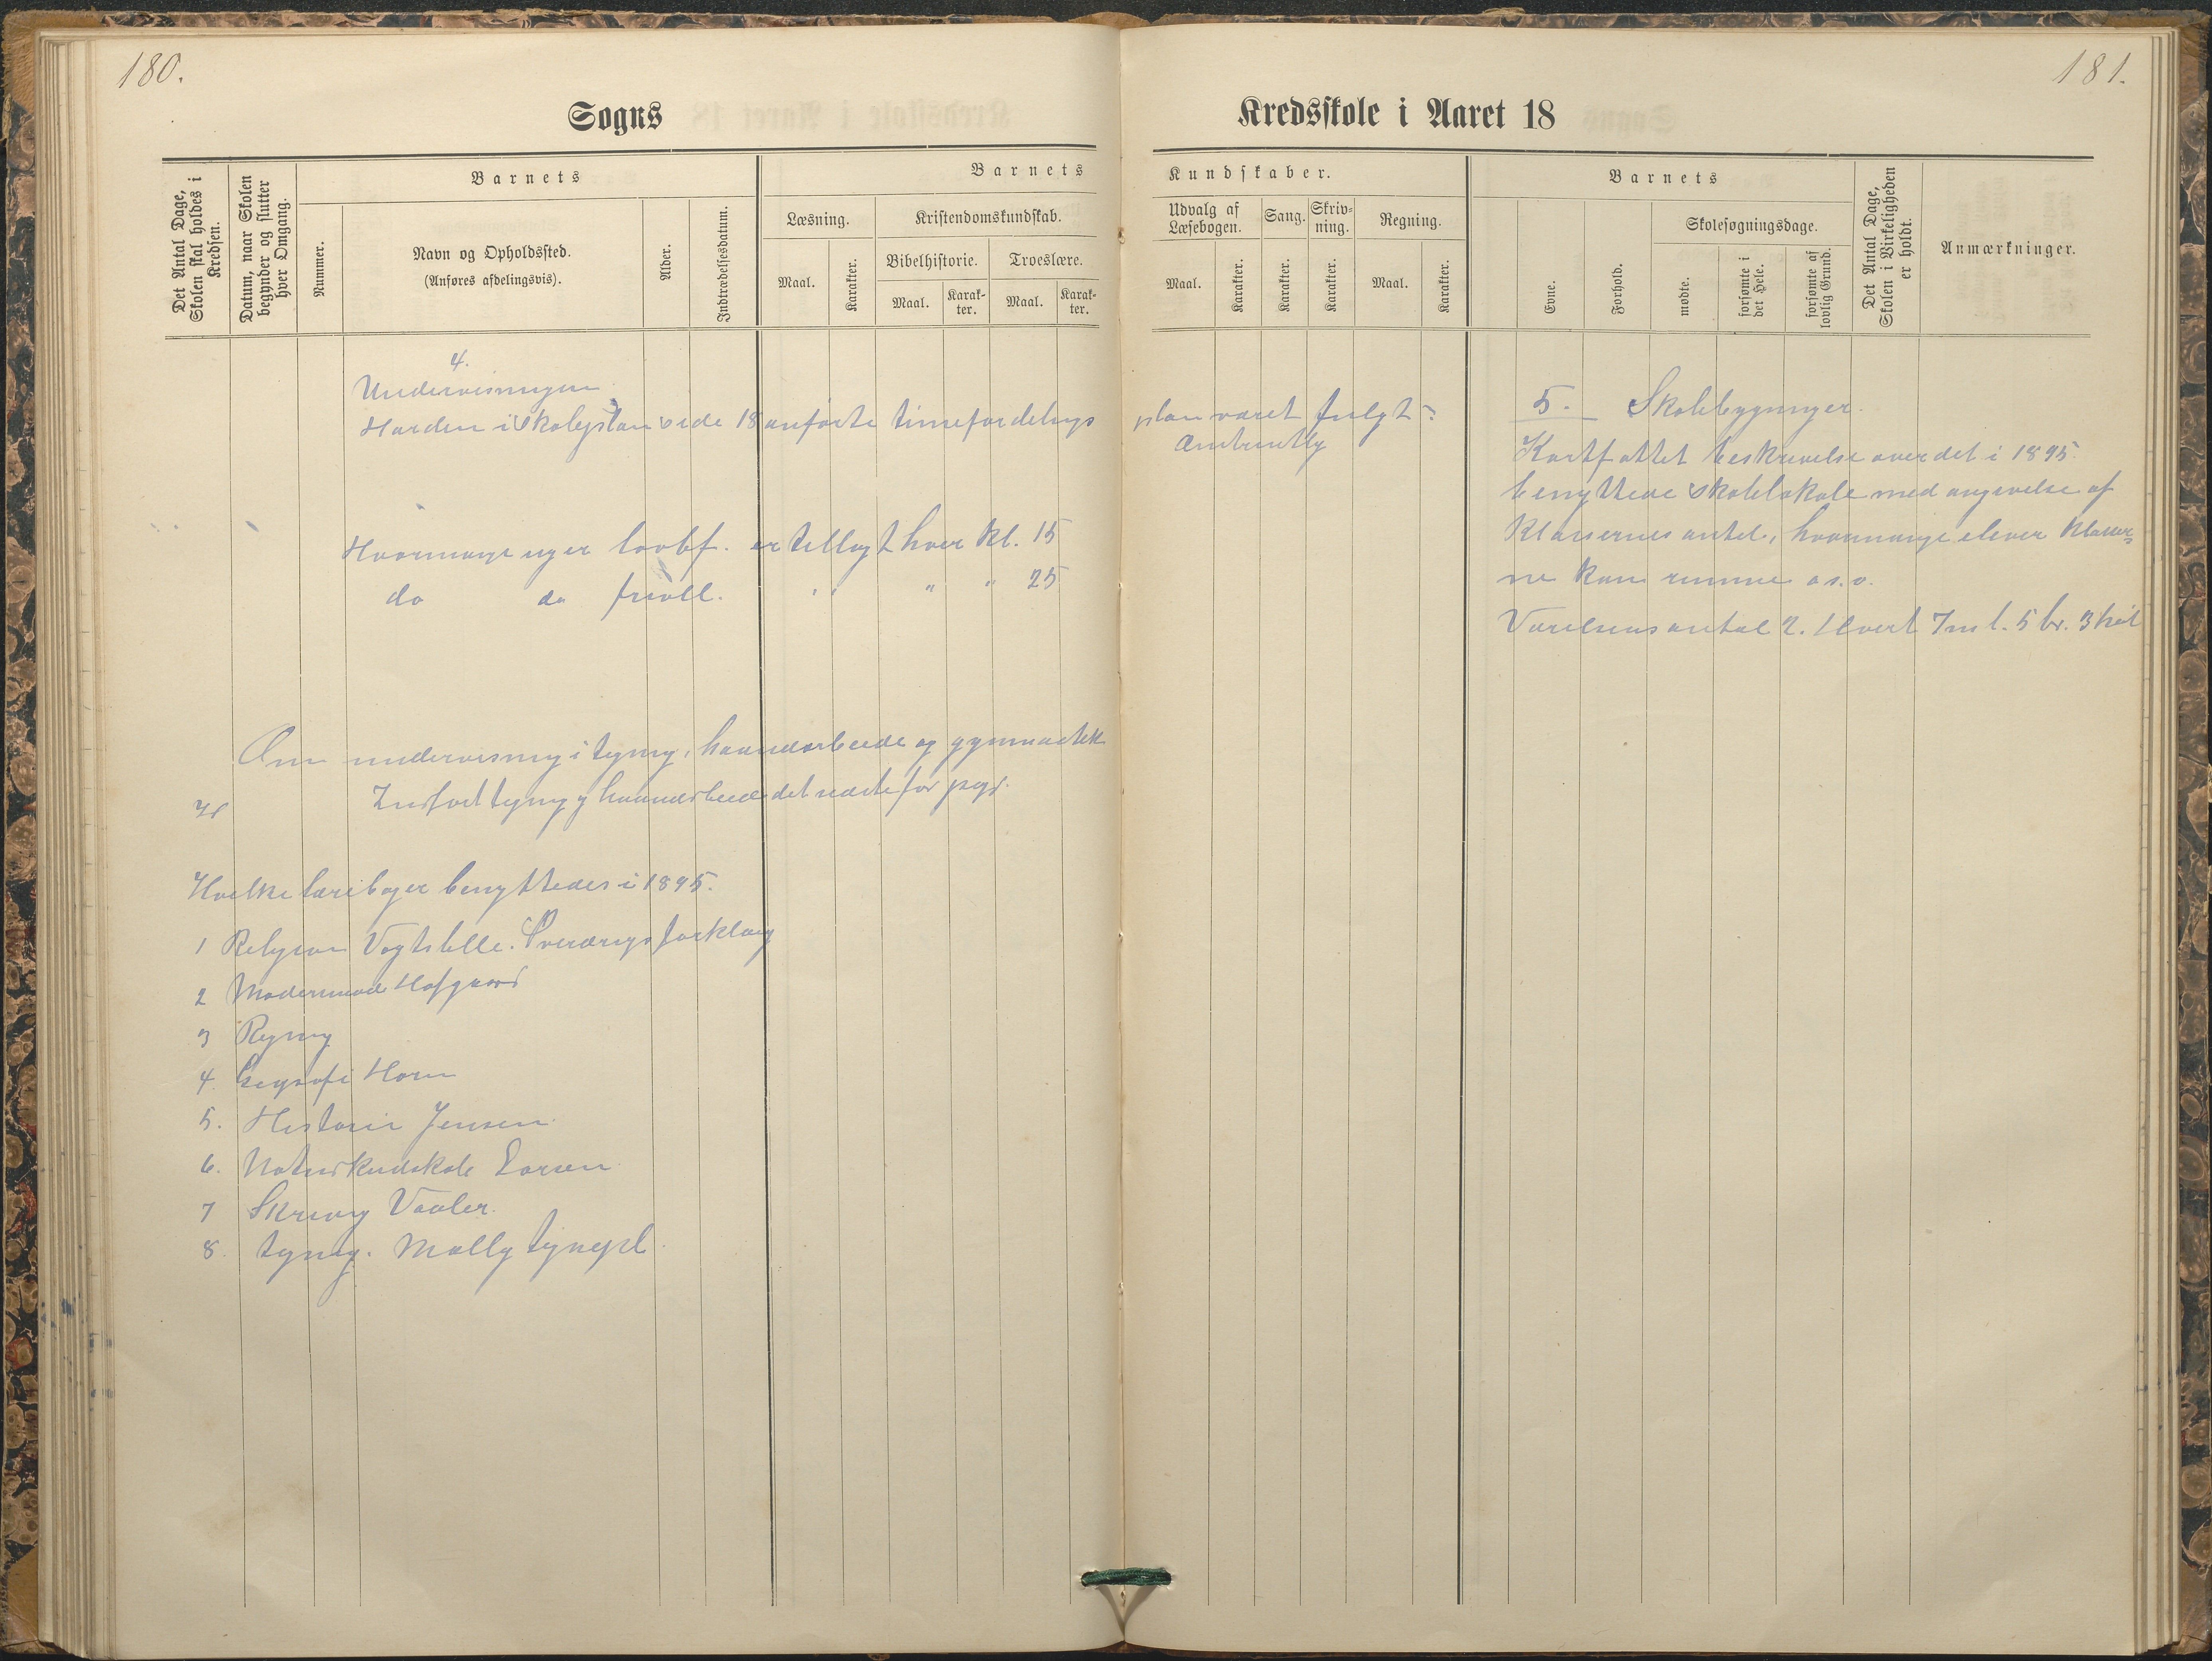 180.
Sogns
Det Antal Dage, Skolen skal holdes i Kredsen.
Datum, naar Skolen begynder og slutter hver Omgang.
Barnets
Nummer.
Navn og Opholdssted.
(Anføres afdelingsvis).
Alder.
Indtrædelsesdatum.
Barnets
Læsning.
Kristendomskundskab.
Maal.
Karakter.
Bibelhistorie.
Troeslære.
Maal.
Karak-
ter.
Maal.
Karak-
ter.
4.
Undervisningen
Har den i Skoleplan side 18 anførte timefordelings
Hvormange uger lovbf. er tillagt hver kl. 15
do do frivill. " " " 25
Om undervisning i syning, haandarbeide og gymnastik
Hvilke lærebøger benyttedes i 1895.
1 Religion Vogts bibelh. Sverdrups forklaring
2 Modersmaal Hofgaard
3 Regning
4. Geografi Horn
5. Historie Jensen
6. Naturkundskab Larsen
7 Skrivning Vaaler.
8. Syning.
181.
Kredsskole i Aaret 18
Kundskaber.
Udvalg af
Læsebogen.
Sang.
Skriv-
ning.
Regning.
Maal.
Karakter.
Karakter.
Karakter.
Maal.
Karakter.
Barnets
Evne.
Forhold.
Skolesøgningsdage.
mødte.
forsømte i
det Hele.
forsømte af
lovlig Grund.
Det Antal Dage,
Skolen i Virkeligheden
er holdt.
Anmærkninger.
plan været fulgt?
5. Skolebygninger.
Kortfattet beskrivelse over det i 1895
benyttede skolelokale med angivelse af
Klassernes antal, hvormange elever klasser-
ne kan rumme o.s.v.
Værelsens antal 2. Hvert 7 m l. 5 br. 3 høit